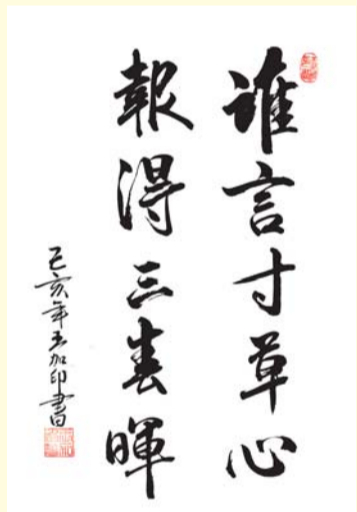 谁言寸草心
報得三春暉
己亥年王加印書